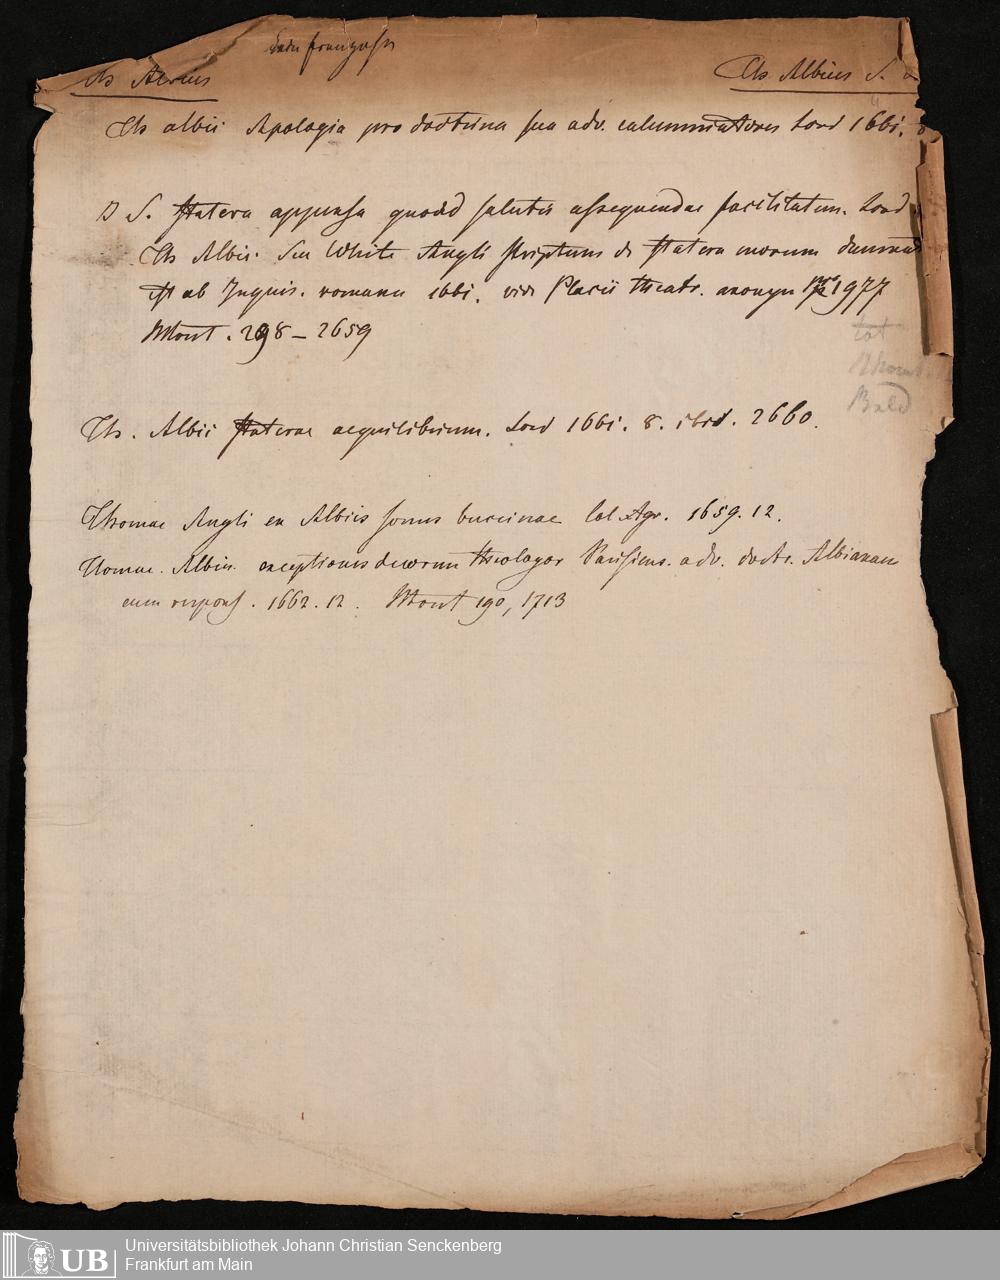 Th Albius
Th Albius S.
Th albii Apologia pro doctrina sua adv. calumniatores Lond 1661.
D S. statera appensa quoad salutis assequendae facilitatem. Lond
Th Albii. seu White Angli scriptum de statera morum damnat
est ab Inquis. romana 1661. vide Placii theatr. anonym 1977
Mont. 298 – 2659
tot
Bald
Th. Albii staterae aequilibrium. Lond 1661. 8. ibid. 2660.
Thomae Angli ex Albiis sonus buccinae Col Agr. 1659. 12.
Thomae. Albii. exceptiones duorum theologor Parisiens. adv. doctr. Albianam
cum respons. 1662. 12. Mont 190, 1713
UB
Universitätsbibliothek Johann Christian Senckenberg
Frankfurt am Main